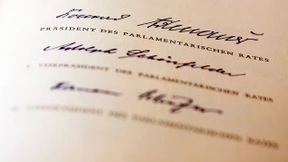 Konrad Adenauer
PRÄSIDENT DES PARLAMENTARISCHEN RATES
Adolph Schönfelder
VIZEPRÄSIDENT DES PARLAMENTARISCHEN RATES
Hermann Schäfer
VIZEPRÄSIDENT DES PARLAMENTARISCHEN RATES